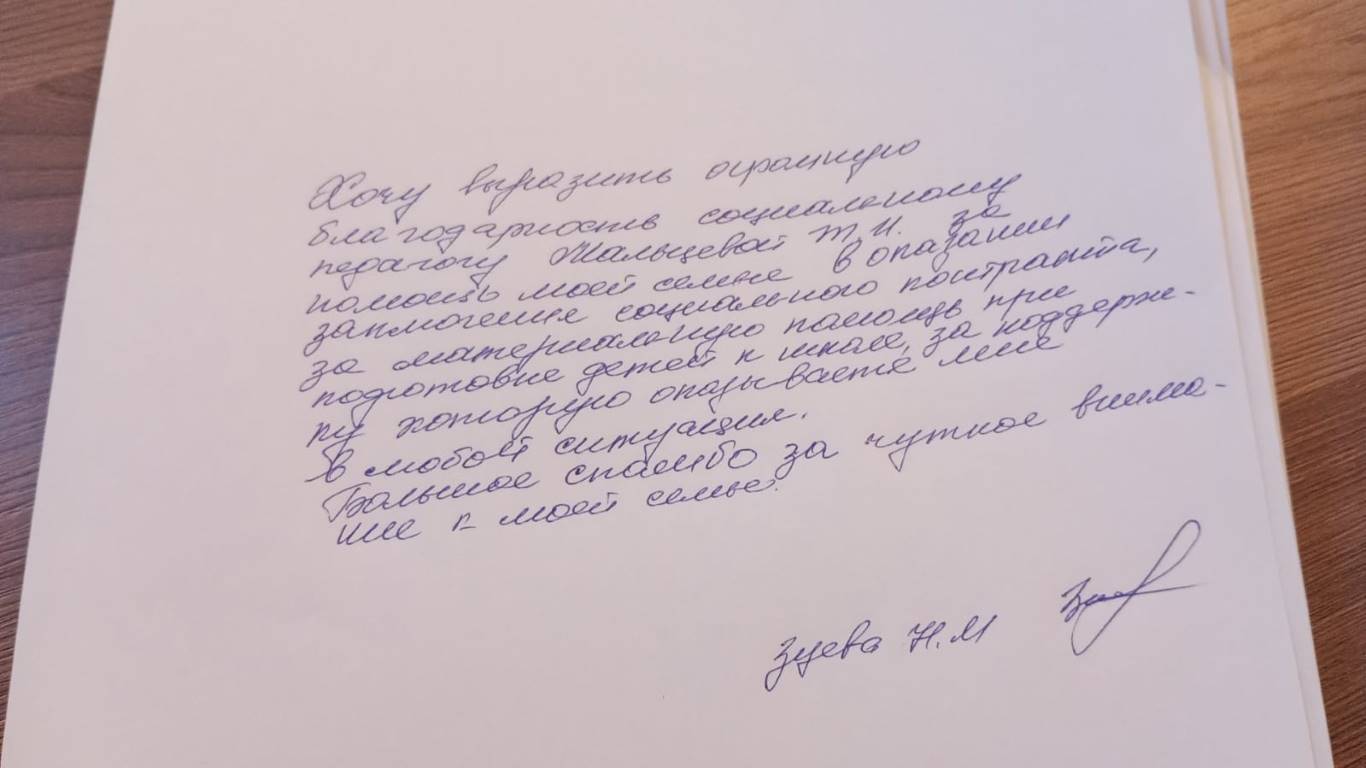 Хочу выразить огромную
благодарность социальному
педагогу Мальцевой Т.И. за
помощь моей семье в оказании
заключения социального контракта,
за материальную помощь при
подготовке детей к школе, за поддерж-
ку которую оказываете мне
в любой ситуации.
Большое спасибо за чуткое внима-
ние к моей семье.
Зуева Н.М